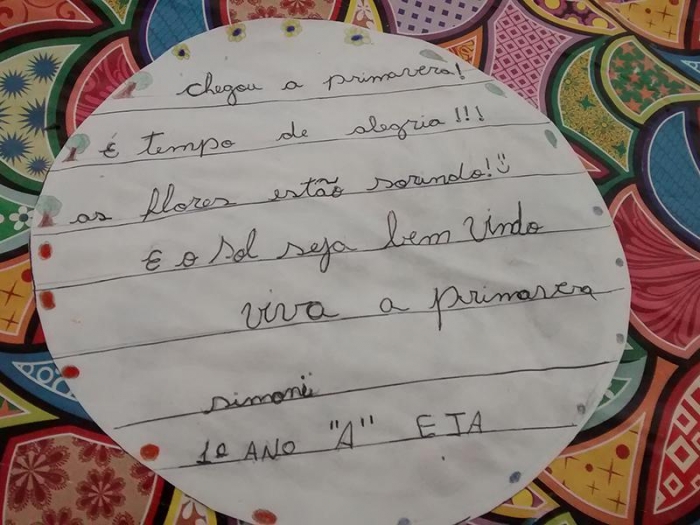 chegou a primavera!
é tempo de alegria!!!
as flores estão sorindo!
E o sol seja bem vindo
viva a primavera
simoni
1º ANO "A" EJA